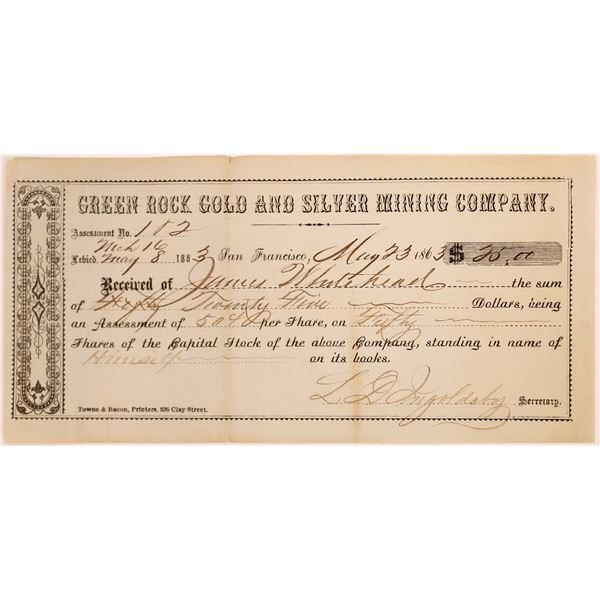 GREEN ROCK GOLD AND SILVER MINING COMPANY.
Assessment No. 1 & 2
Mch 16
Levied. May 8 1863 San Francisco, May 23 1863 $ 25.00
Received of James Whitehead the sum
of Twenty Five Dollars, being
an Assessment of 50 per Share, on Fifty
Shares of the Capital Stock of the above Company, standing in name of
Himself on its books.
L. D. Ingoldsby Secretary.
Towne & Bacon, Printers, 536 Clay Street.